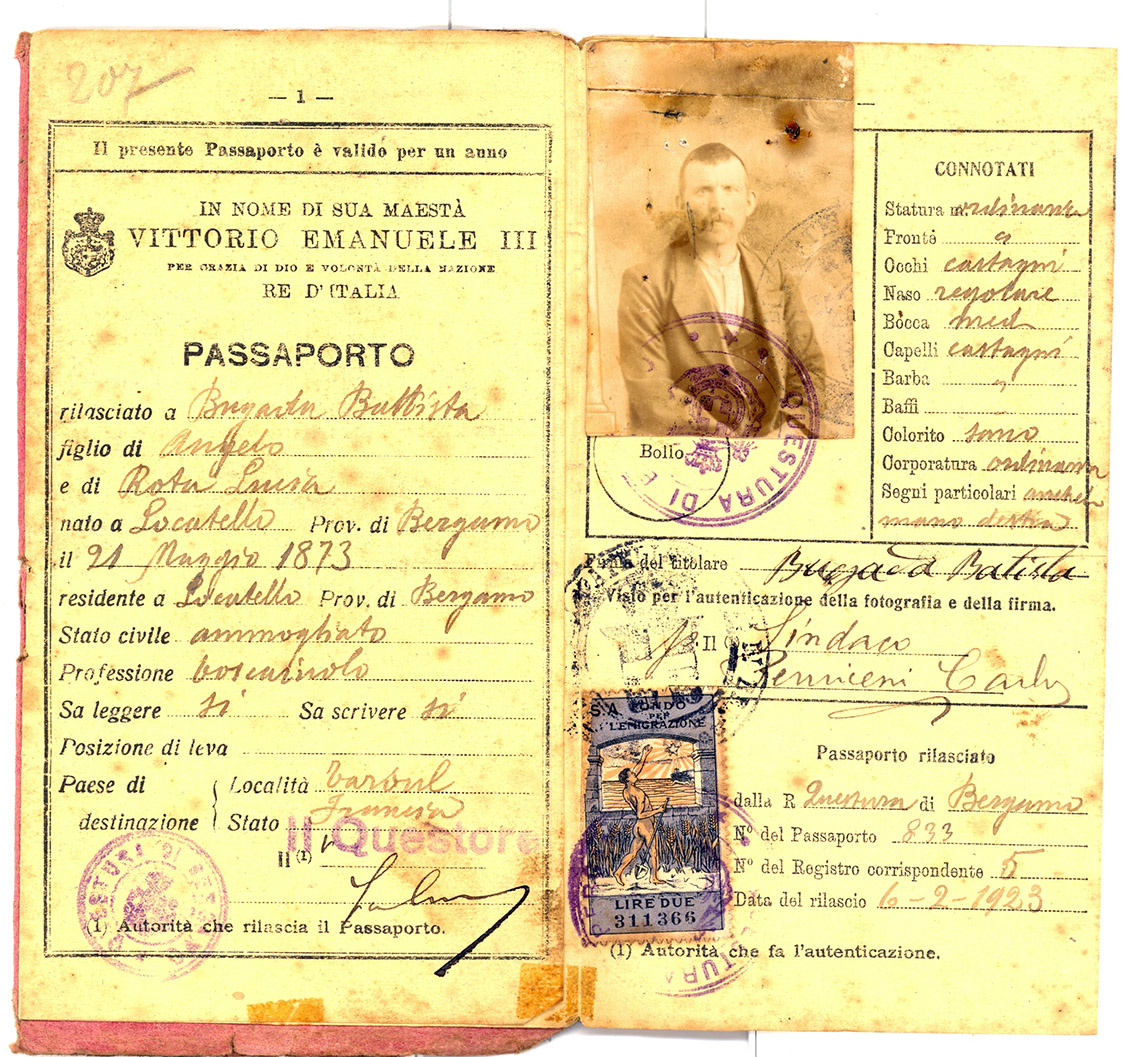 207
— 1 —
Il presente Passaporto è valido per un anno
IN NOME DI SUA MAESTÀ
VITTORIO EMANUELE III
PER GRAZIA DI DIO E VOLONTÀ DELLA NAZIONE
RE D'ITALIA
PASSAPORTO
rilasciato a Bugada Battista
figlio di Angelo
e di Rota Luisa
nato a Locatello Prov. di Bergamo
il 21 Maggio 1873
residente a Locatello Prov. di Bergamo
Stato civile ammogliato
Professione boscaiuolo
Sa leggere si Sa scrivere si
Posizione di leva
Paese di destinazione
Località
Stato Francia
Il Questore
Il (1)
QUESTURA DI
(1) Autorità che rilascia il Passaporto.
CONNOTATI
Statura m. ordinaria
Fronte
Occhi castagni
Naso regolare
Bocca med
Capelli castagni
Barba
Baffi
Colorito sano
Corporatura ordinaria
Segni particolari
mano destra
Bollo
QUESTURA DI
Firma del titolare Bugada Batista
Visto per l'autenticazione della fotografia e della firma.
Il (1) Sindaco
Carlo
FONDO
PER
L'EMIGRAZIONE
LIRE DUE
311366
Passaporto rilasciato
dalla R Questura di Bergamo
N° del Passaporto 833
N° del Registro corrispondente 5
Data del rilascio 6-2-1923
(1) Autorità che fa l'autenticazione.